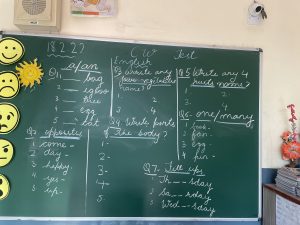 18.2.22
C.W
Test
English
a/an
Q1. ___ bag
2 ___ igloo
3 ___ tree
4 ___ egg
5 ___ bat
Q2. opposite
1 come -
2 day -
3 happy -
4 yes -
5 up -
Q3 Write any
four vegetables
name?
1. 2.
3. 4.
Q4. Write parts
of The body?
1-
2-
3-
4-
5.
Q5 Write any 4
fruits name?
1. 2.
3. 4.
Q6. one/many
1 book -
2 fan -
3 egg -
4 pen -
Q7. Fill ups
1. Th__sday
2. Sa__rday
3. Wed__sday